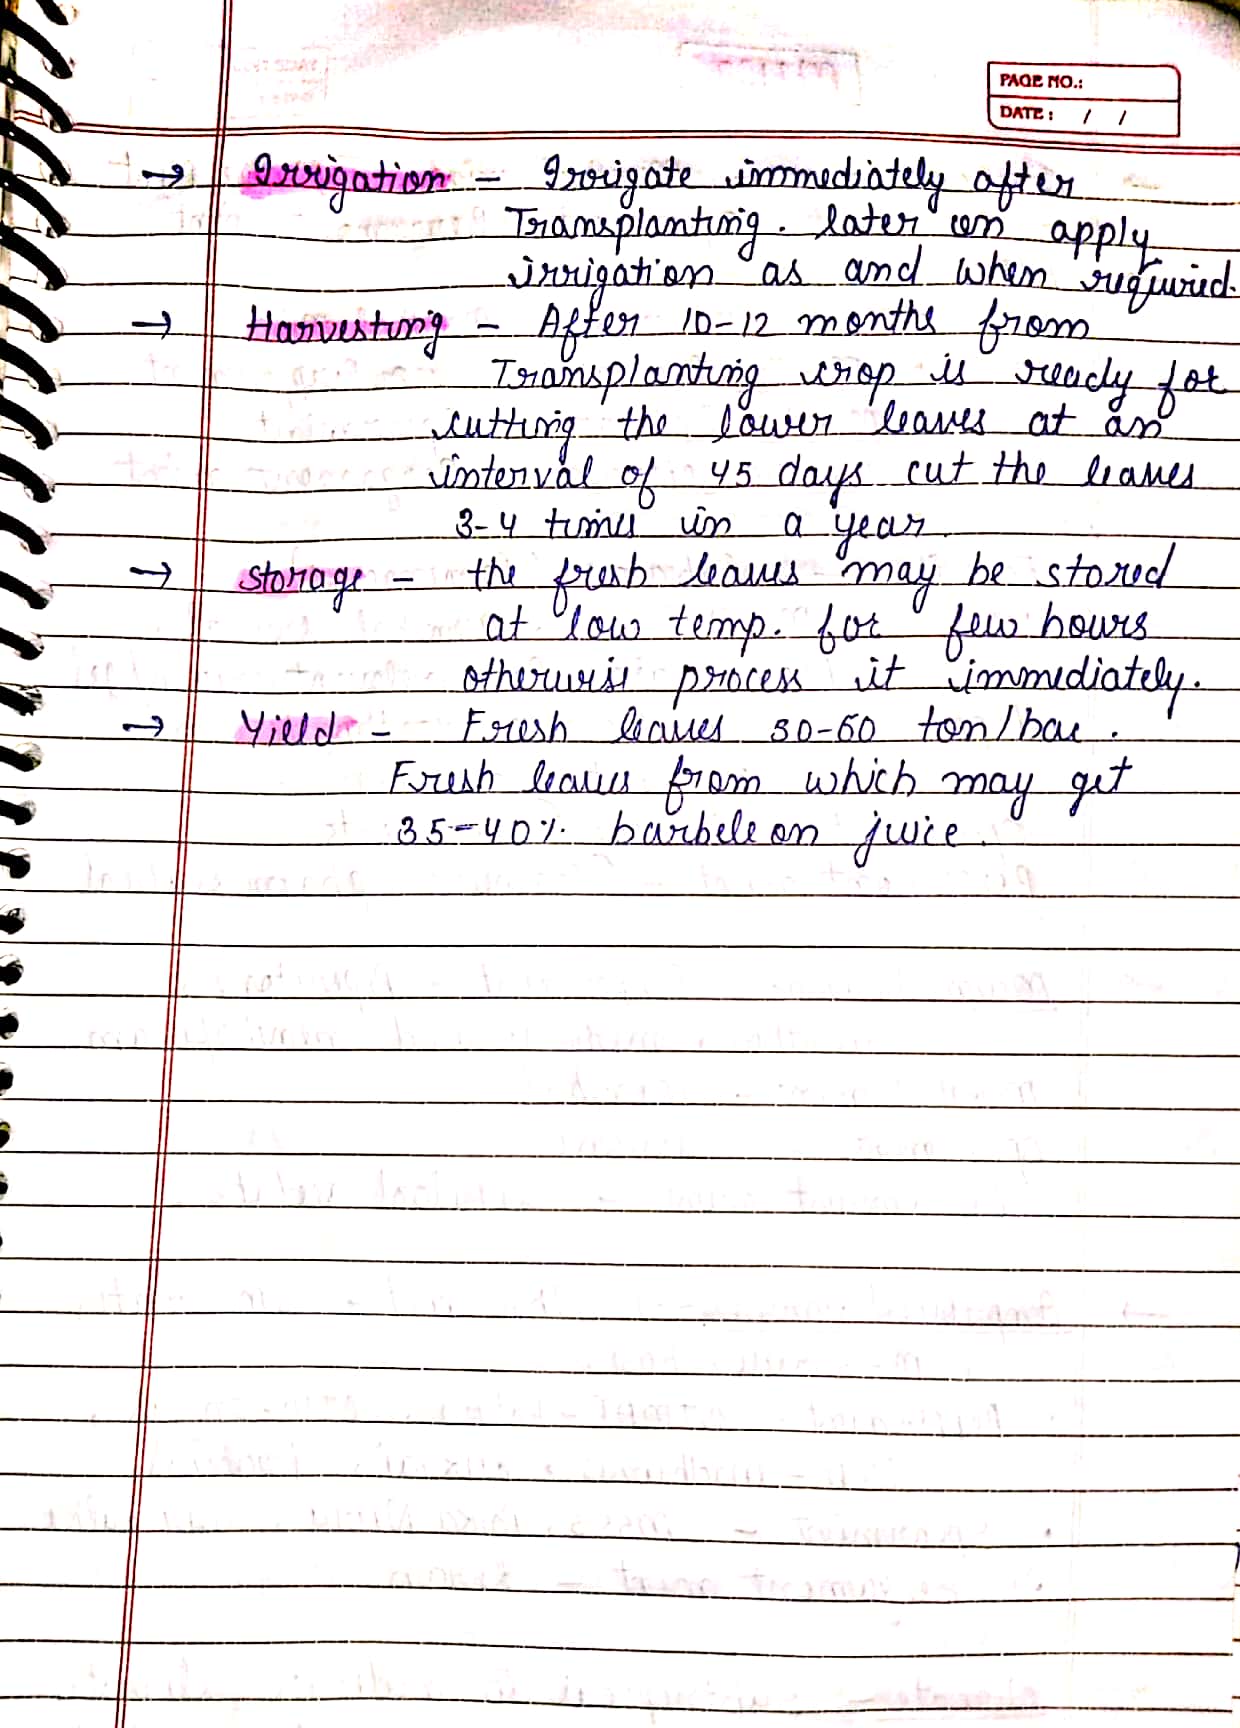 PAGE NO.:
DATE: / /
→ Irrigation - Irrigate immediately after
Transplanting. later on apply
irrigation as and when required.
→ Harvesting - After 10-12 months from
Transplanting crop is ready for
cutting the lower leaves at an
interval of 45 days cut the leaves
3-4 times in a year.
→ Storage - the fresh leaves may be stored
at low temp. for few hours
otherwise process it immediately.
→ Yield - Fresh leaves 50-60 ton/hac.
Fresh leaves from which may get
35-40% barbeleon juice.